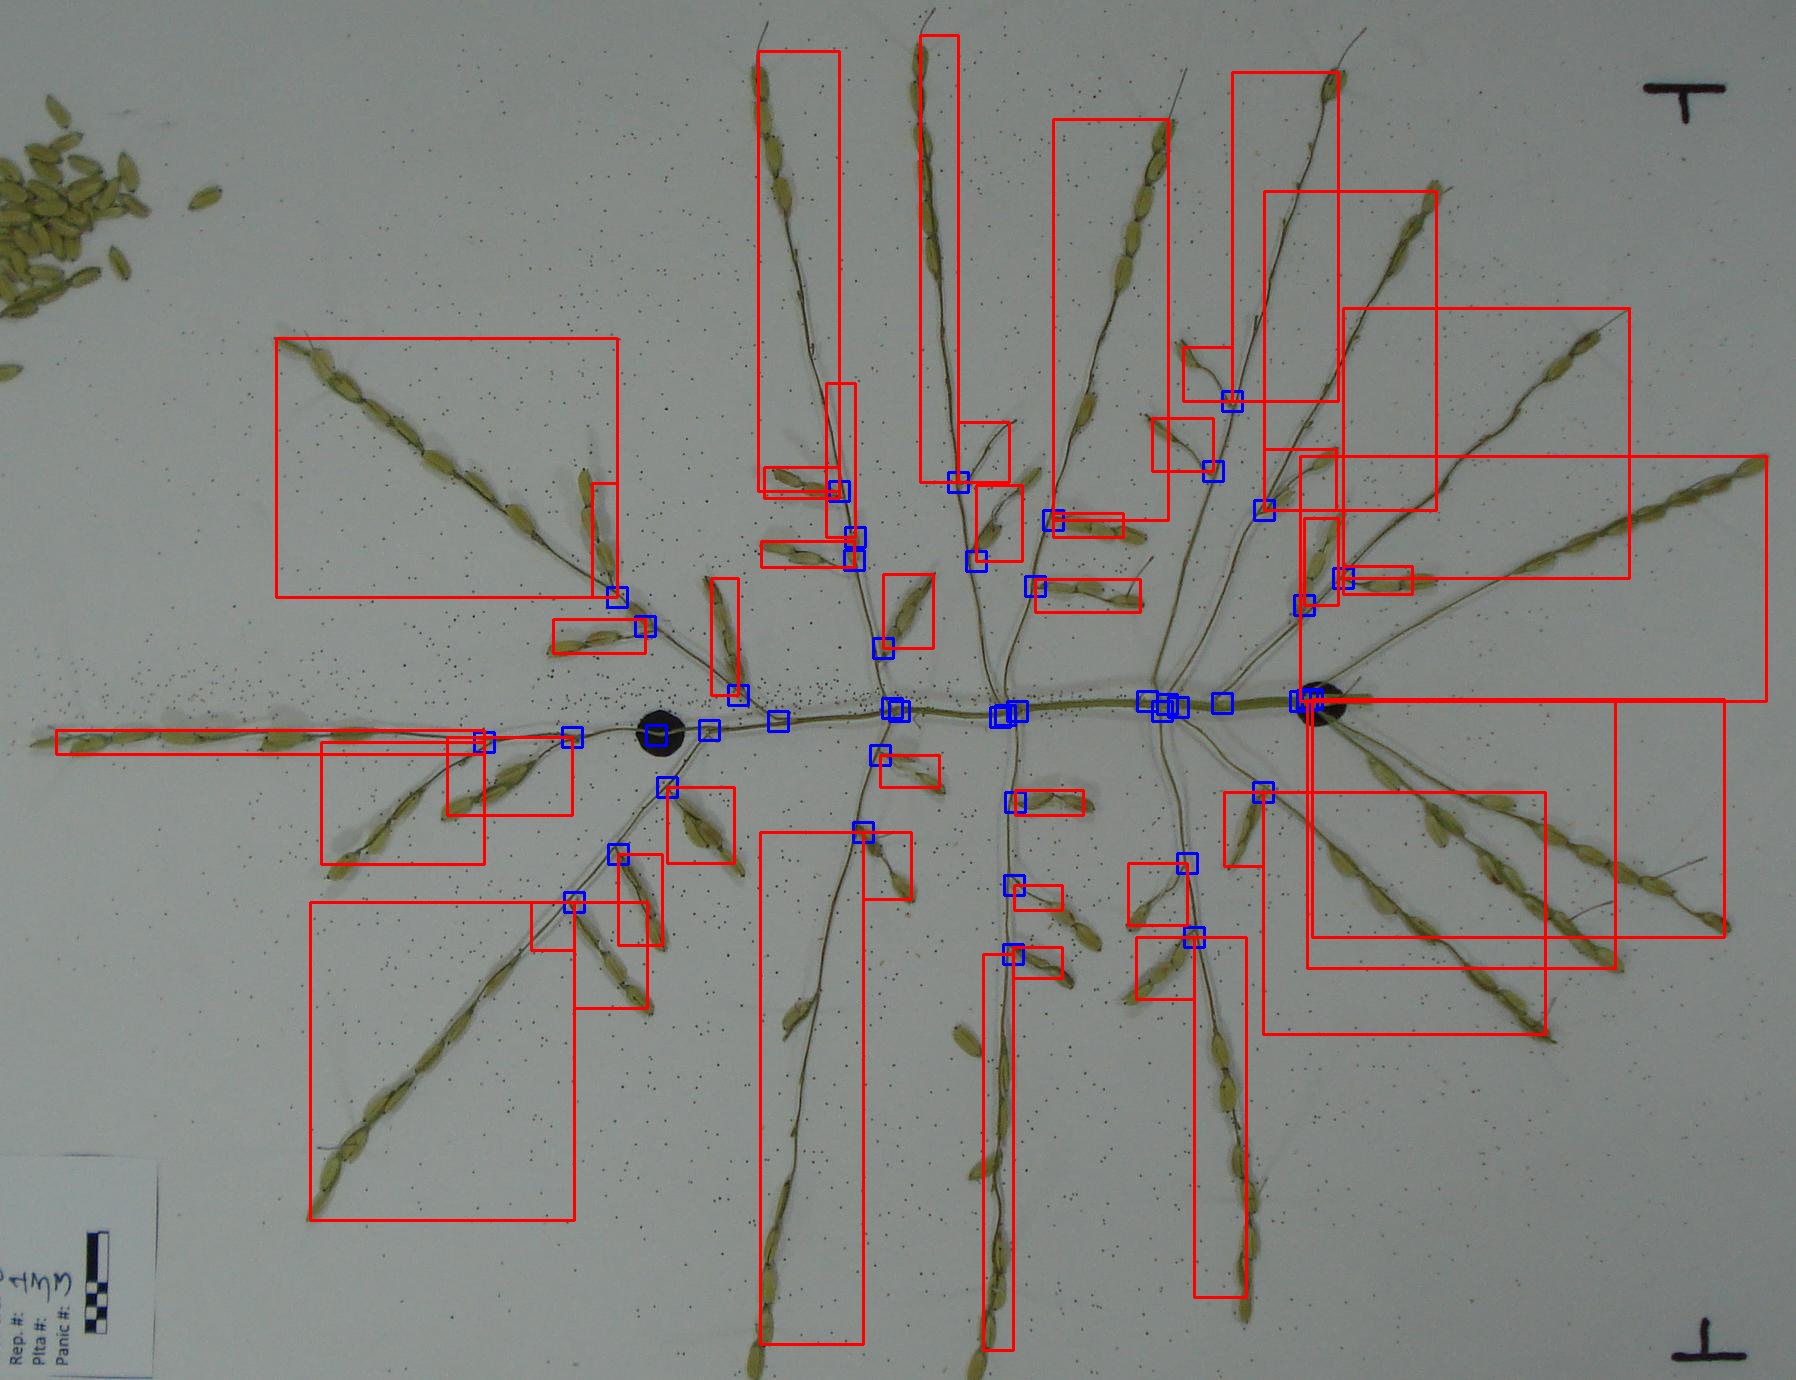 Rep. #: 1
Plta #: 3
Panic #: 3